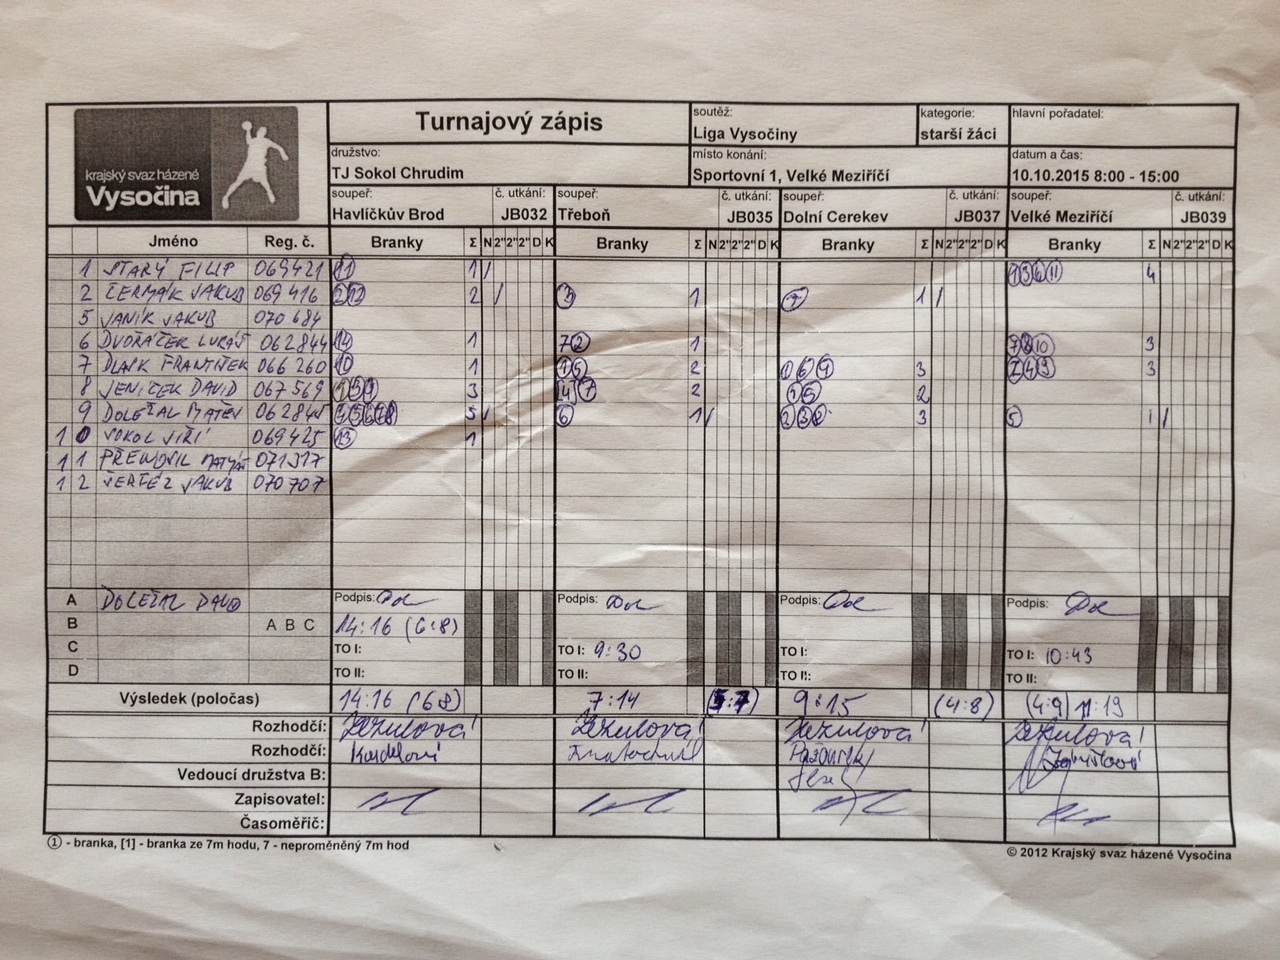 krajský svaz házené
Vysočina
Turnajový zápis
soutěž:
Liga Vysočiny
kategorie:
starší žáci
hlavní pořadatel:
družstvo:
TJ Sokol Chrudim
místo konání:
Sportovní 1, Velké Meziříčí
datum a čas:
10.10.2015 8:00 - 15:00
soupeř: č. utkání: soupeř: č. utkání: soupeř: č. utkání: soupeř: č. utkání:
Havlíčkův Brod JB032 Třeboň JB035 Dolní Cerekev JB037 Velké Meziříčí JB039
Jméno Reg. č. Branky Σ N 2" 2" 2" D K Branky Σ N 2" 2" 2" D K Branky Σ N 2" 2" 2" D K Branky Σ N 2" 2" 2" D K
1 STARÝ FILIP 069421 11 1 / 1 3 6 11 4
2 ČERMÁK JAKUB 069416 2 12 2 / 3 1 7 1 /
5 VANÍK JAKUB 070684
6 DVOŘÁČEK LUKÁŠ 062844 14 1 7 2 1 7 8 10 3
7 DLASK FRANTIŠEK 066260 10 1 1 5 2 1 6 9 3 2 4 9 3
8 JENÍČEK DAVID 067569 1 5 9 3 [4] 7 2 1 5 2
9 DOLEŽAL MATĚJ 062845 5 / 6 1 / 2 3 8 3 5 1 /
10 SOKOL JIŘÍ 069425 13 1
11 071317
12 JAKUB 070707
A DOLEŽAL DAVID Podpis: Dol Podpis: Dol Podpis: Dol Podpis: Dol
B A B C 14:16 (6:8)
C TO I: TO I: 9:30 TO I: TO I: 10:43
D TO II: TO II: TO II: TO II:
Výsledek (poločas) 14:16 (6:8) 7:14 (5:7) 9:15 (4:8) (4:9) 11:19
Rozhodčí:
Rozhodčí:
Vedoucí družstva B:
Zapisovatel:
Časoměřič:
① - branka, [1] - branka ze 7m hodu, 7 - neproměněný 7m hod
© 2012 Krajský svaz házené Vysočina